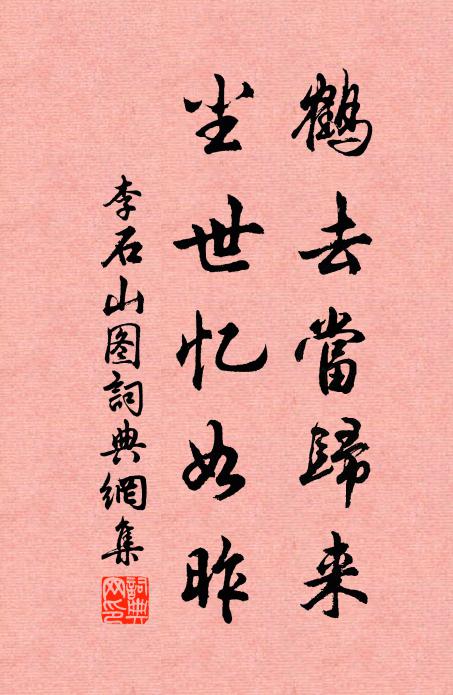 鶴去當歸来
尘世忆如昨
李石山图詞典網集
詞典
网印